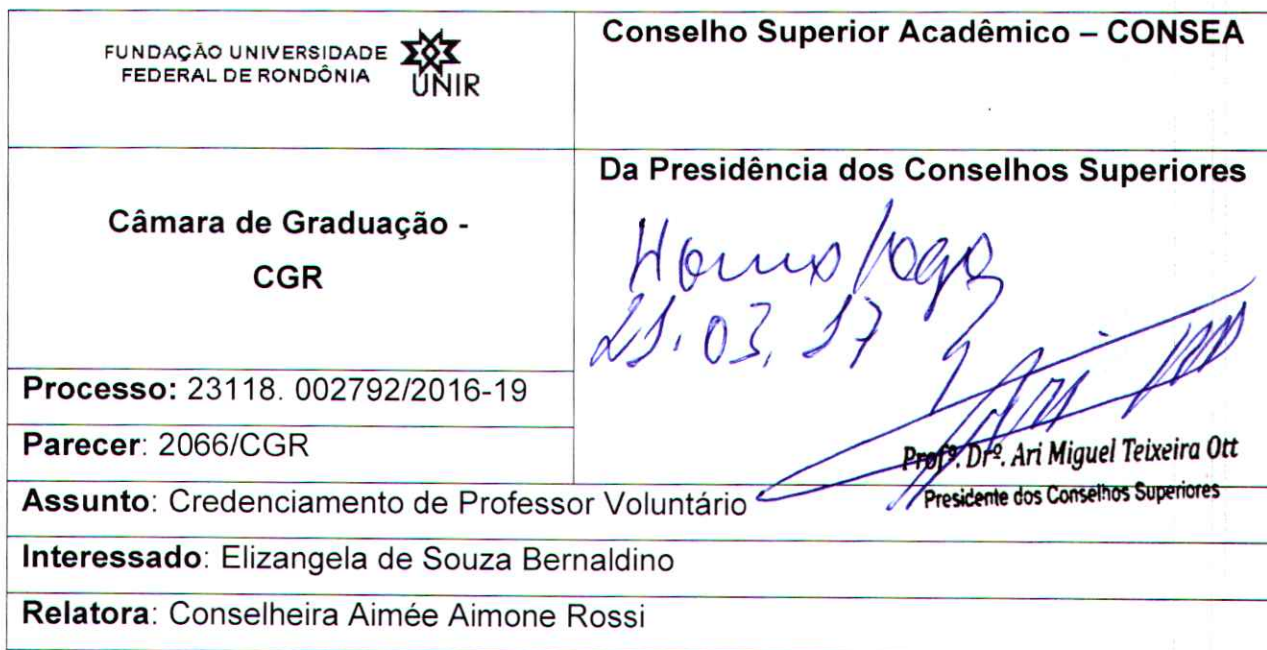 FUNDAÇÃO UNIVERSIDADE
FEDERAL DE RONDÔNIA
UNIR
Conselho Superior Acadêmico – CONSEA
Câmara de Graduação -
CGR
Da Presidência dos Conselhos Superiores
Homologo
21.03.17
Profº. Drº. Ari Miguel Teixeira Ott
Presidente dos Conselhos Superiores
Processo: 23118. 002792/2016-19
Parecer: 2066/CGR
Assunto: Credenciamento de Professor Voluntário
Interessado: Elizangela de Souza Bernaldino
Relatora: Conselheira Aimée Aimone Rossi